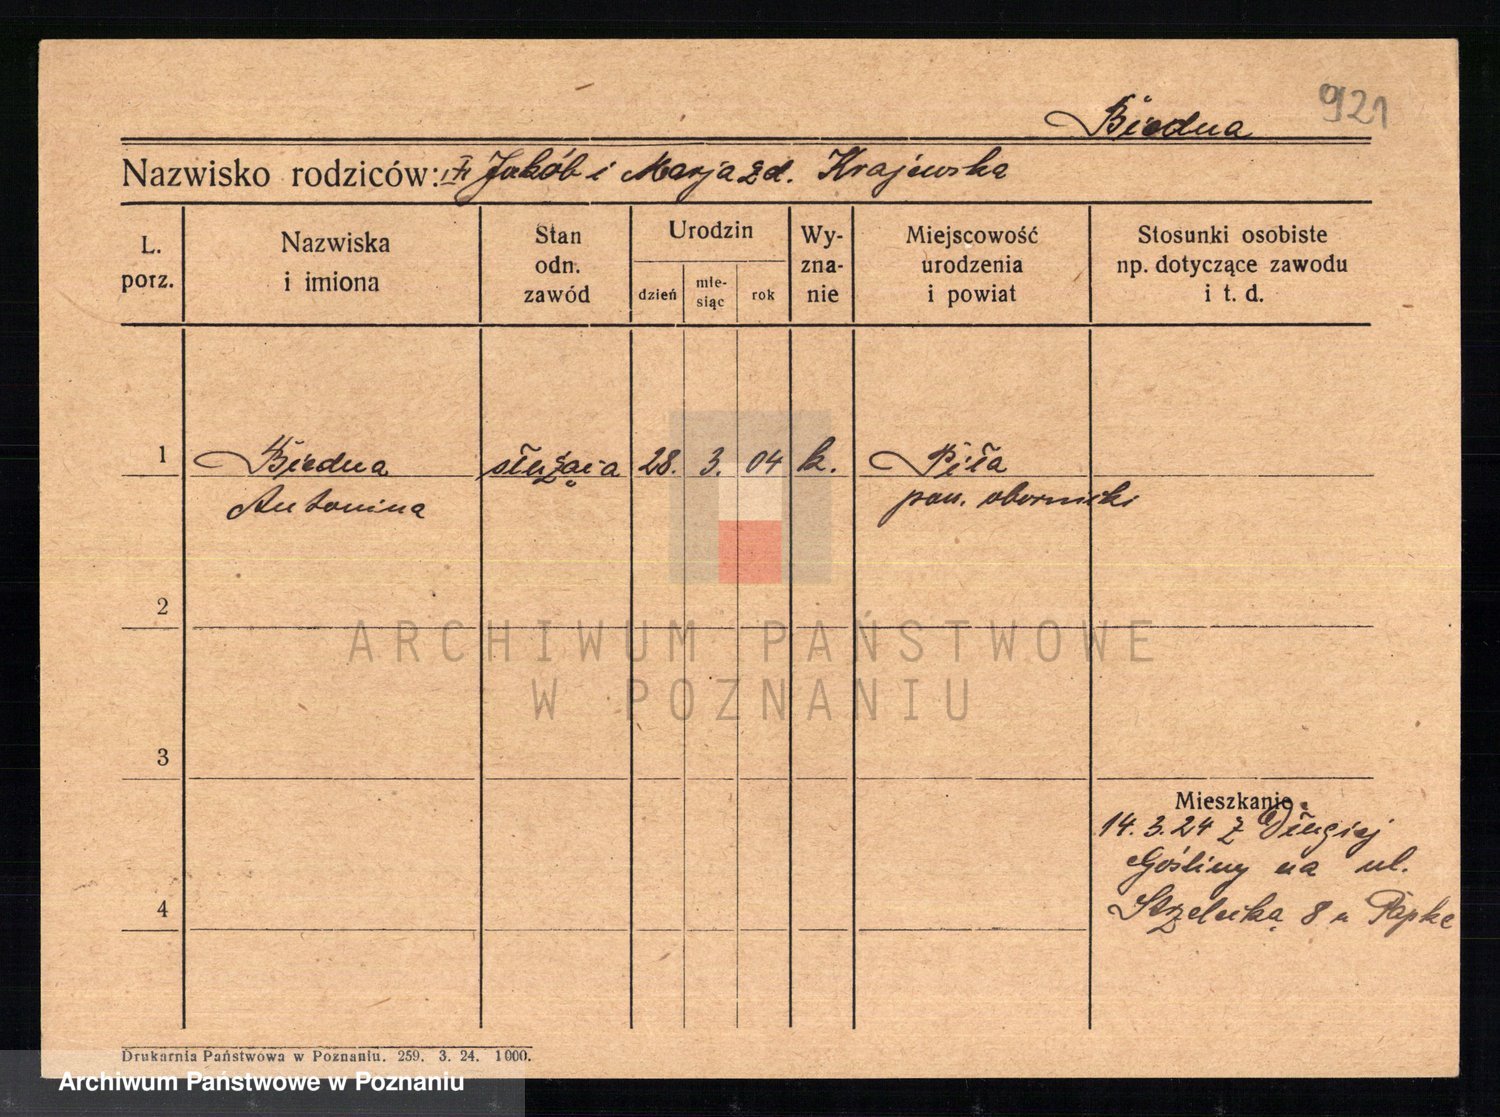 921
Biedna
Nazwisko rodziców: Jakób i Marja zd. Krajewska
L. porz.
Nazwiska i imiona
Stan odn. zawód
Urodzin
dzień
mie-siąc
rok
Wy-zna-nie
Miejscowość urodzenia i powiat
Stosunki osobiste np. dotyczące zawodu i t. d.
1 Biedna służąca 28. 3. 04 k. Piła
Antonina pow. obornicki
2
ARCHIWUM PAŃSTWOWE
W POZNANIU
3
Mieszkanie
14.3.24 z Długiej
Gośliny na ul.
4 Strzelecką 8 u Papke
Drukarnia Państwowa w Poznaniu. 259. 3. 24. 1000.
Archiwum Państwowe w Poznaniu